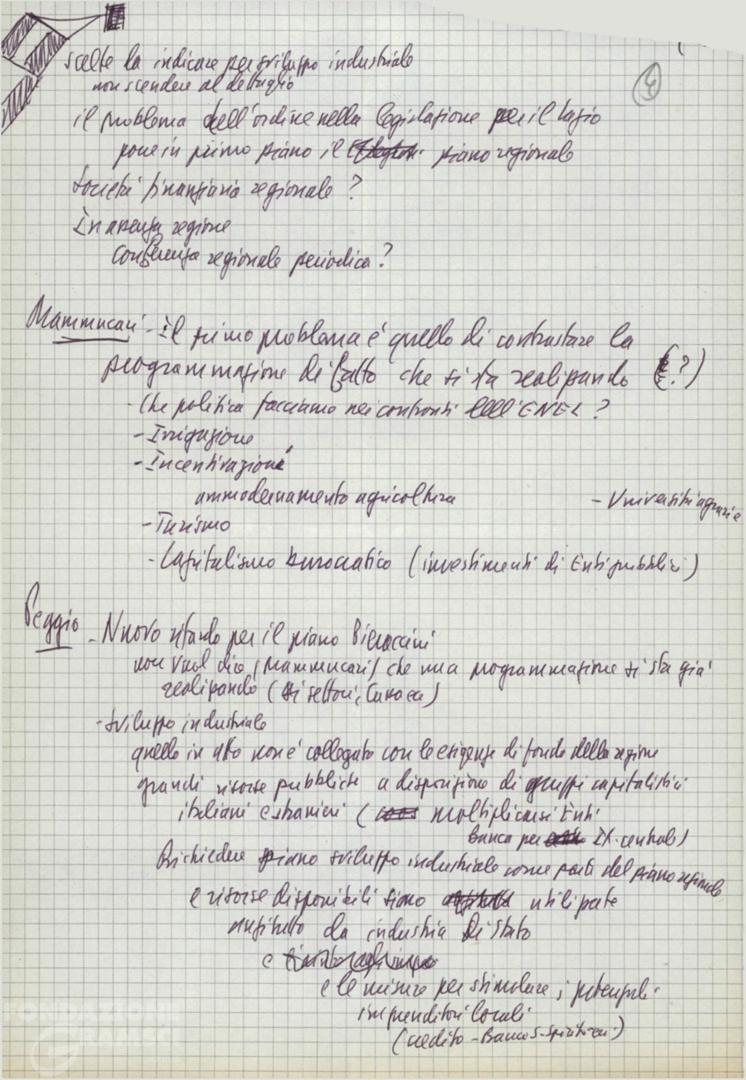 4
scelte da indicare per sviluppo industriale
non scendere al dettaglio
il problema dell'ordine nella legislazione per il Lazio
pone in primo piano il piano regionale
Società finanziaria regionale?
In assenza regione
Conferenza regionale periodica?
Mammucari - Il primo problema è quello di contrastare la
programmazione di fatto che si sta realizzando (?)
- Che politica facciamo nei confronti dell'ENEL?
- Irrigazione
- Incentivazione
ammodernamento agricoltura - Università agrarie
- Turismo
- Capitalismo burocratico (investimenti di Enti pubblici)
Peggio - Nuovo ritardo per il piano Pieraccini
non vuol dire (Mammucari) che una programmazione si sta già
realizzando (di settori,
- Sviluppo industriale
quello in atto non è collegato con le esigenze di fondo della regione
grandi risorse pubbliche a disposizione di gruppi capitalistici
italiani e stranieri ( moltiplicarsi Enti
Banca per It. centrale)
Richiedere piano sviluppo industriale come parte del piano regionale
e risorse disponibili siano utilizzate
anzitutto da industria di Stato
e
e le misure per stimolare i potenziali
imprenditori locali
(credito - Banco S. Spirito
FONDAZIONE